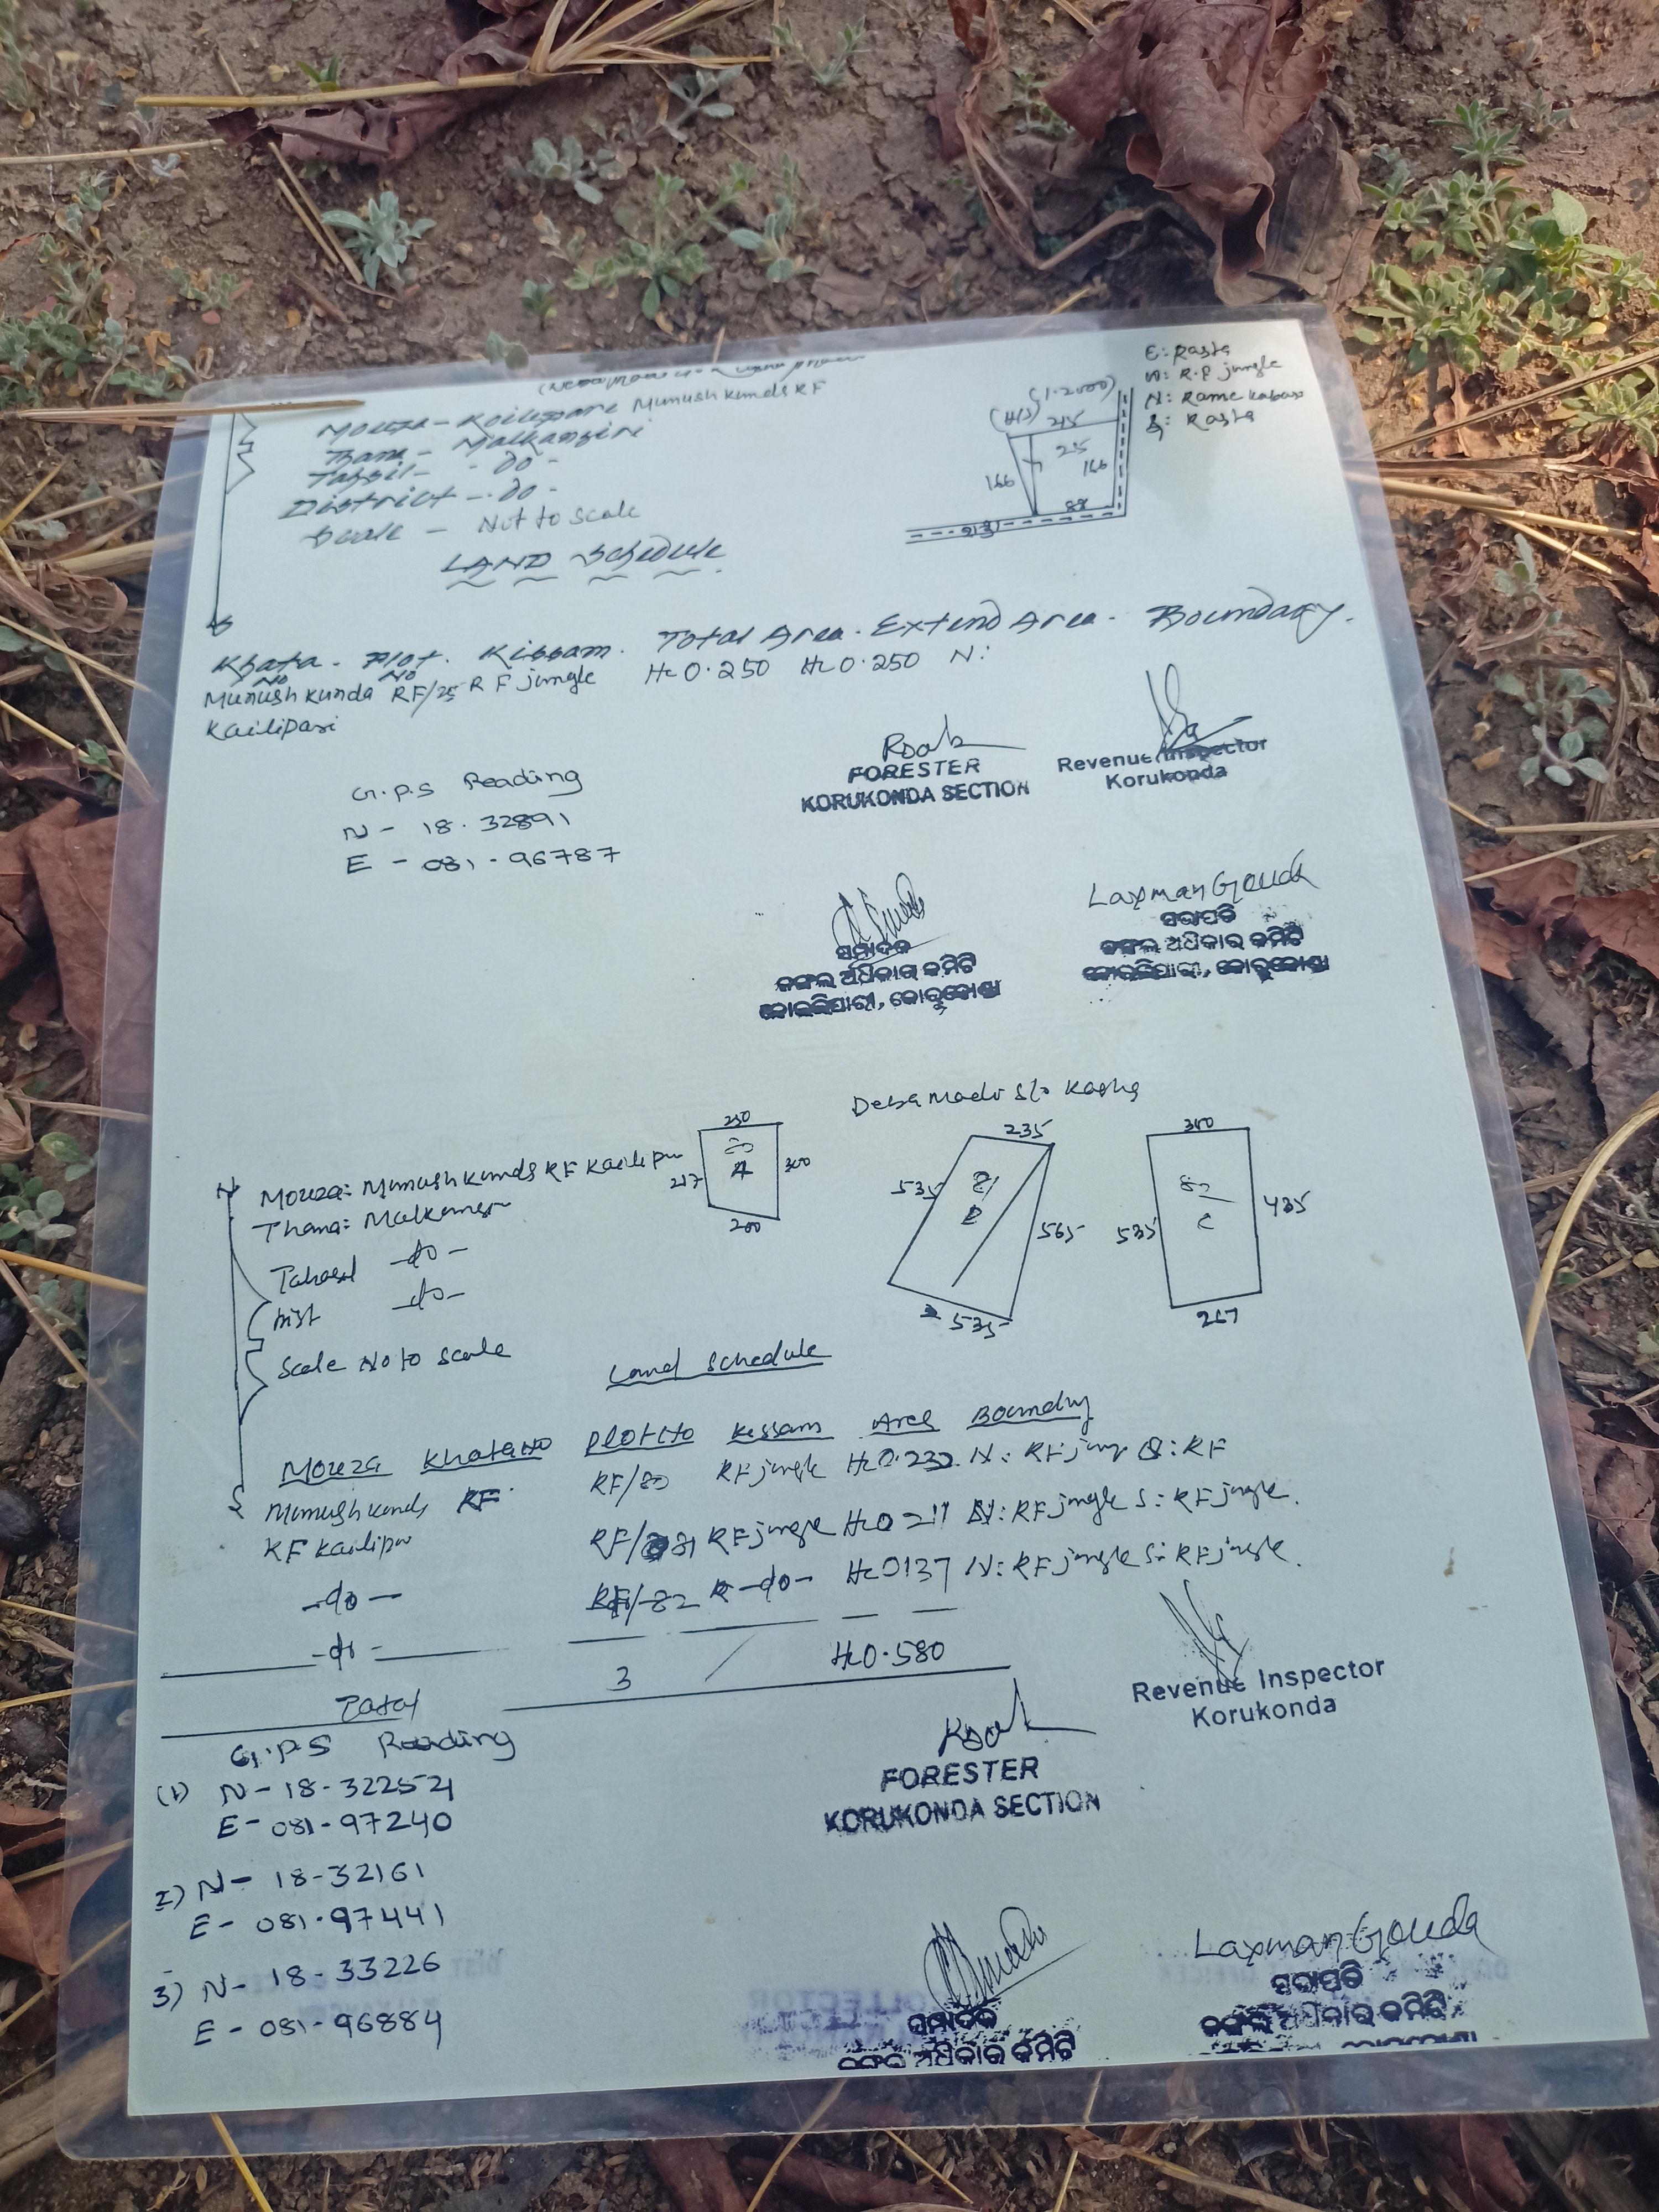 E: Rasta
W: R.F jungle
N: Rame Kabasi
S: Rasta
(1-2000)
215
25
166
166
88
213
Mouza - Koilipari Munush Kunda RF
Thana - Malkangiri
Tahsil - - do -
District - - do -
Scale - Not to Scale
LAND Schedule
S
Khata No - Plot No. Kissam. Total Area. Extend Area. Boundary.
Munush Kunda RF/25 RF jungle Hc 0.250 Hc 0.250 N:
Kailipari
FORESTER
KORUKONDA SECTION
Revenue Inspector
Korukonda
G.P.S Reading
N - 18.32891
E - 081.96787
Laxman Gouda
ସମ୍ପାଦକ
ଜଙ୍ଗଲ ଅଧିକାର କମିଟି
କୋଇଲିପାରୀ, କୋରୁକୋଣ୍ଡା
ସଭାପତି
ଜଙ୍ଗଲ ଅଧିକାର କମିଟି
କୋଇଲିପାରୀ, କୋରୁକୋଣ୍ଡା
Deba Madi S/o Kosha
250
80
A
217
300
200
235
81
B
535
565
535
300
82
C
535
435
267
N
Mouza: Munush Kunda RF Kailipari
Thana: Malkangiri
Tahasil -do-
Dist -do-
Scale No to Scale
S
Land Schedule
Mouza Khata No Plot No Kissam Area Boundry
Munush Kunda RF RF/80 RF jungle Hc 0.232 N: RF jung S: RF
RF Kailipar
RF/81 RF jungle Hc 0 211 N: RF jungle S: RF jungle.
-do- RF/-82 -do- Hc 0137 N: RF jungle S: RF jungle.
-do-
Total 3 Hc 0.580
Revenue Inspector
Korukonda
FORESTER
KORUKONDA SECTION
G.P.S Reading
(1) N - 18-32254
E - 081-97240
2) N - 18-32161
E - 081.97441
3) N - 18-33226
E - 081-96884
Laxman Gouda
ସମ୍ପାଦକ
ଜଙ୍ଗଲ ଅଧିକାର କମିଟି
ସଭାପତି
ଜଙ୍ଗଲ ଅଧିକାର କମିଟି